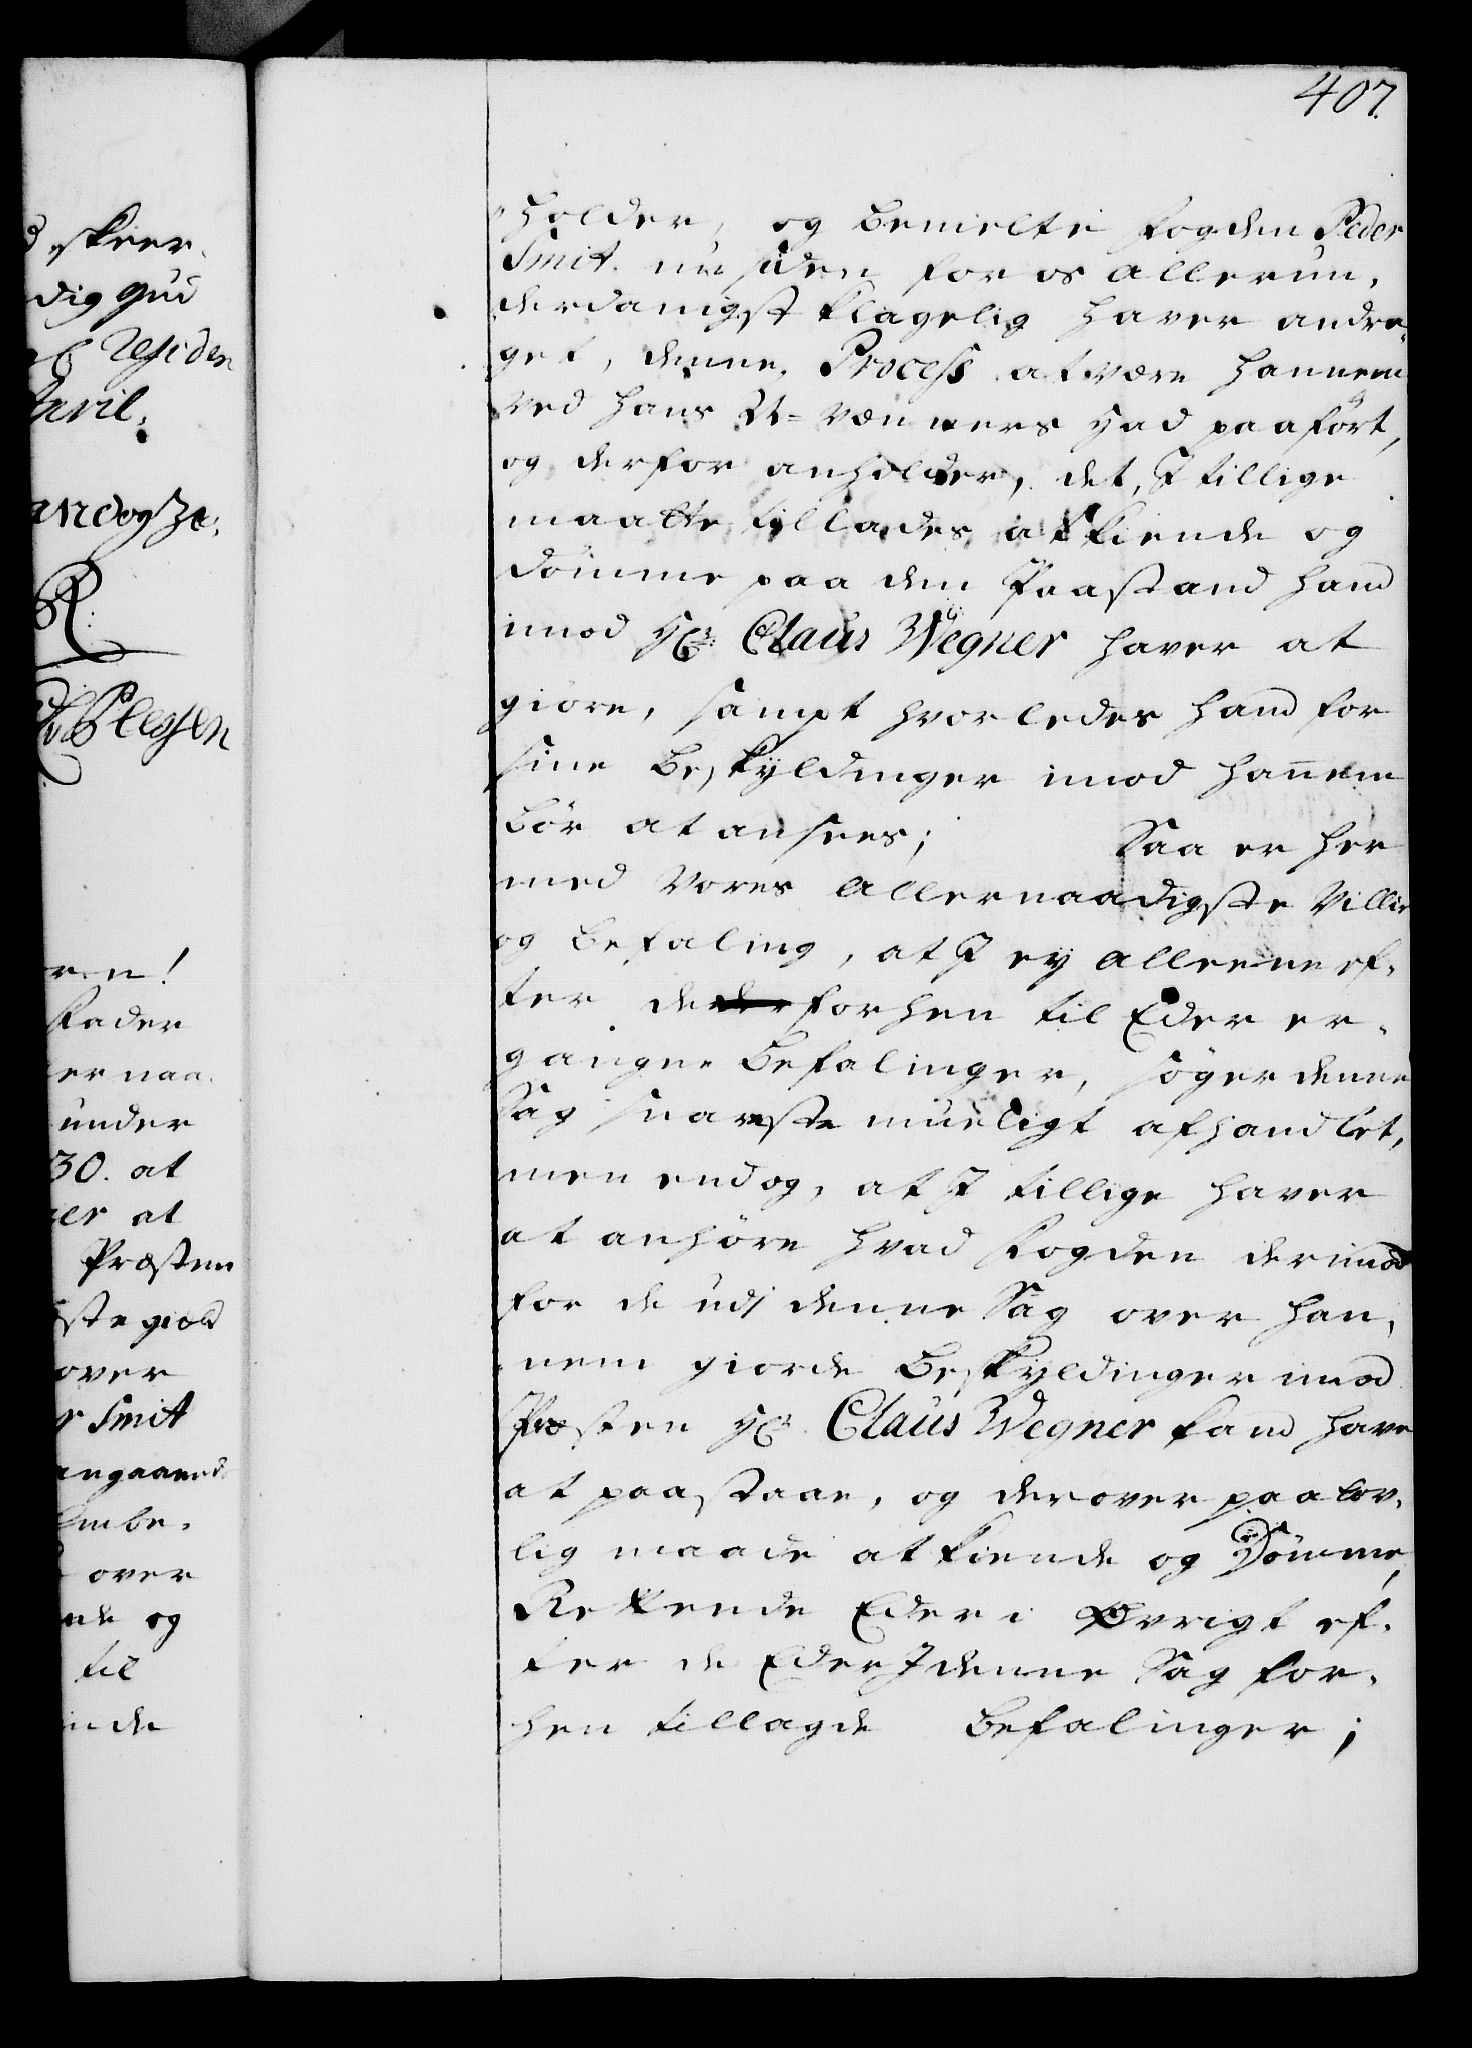 407.
holder, og bemelte fogden Peder
Smit nu siden for os allerun,
derdanigst klagelig haver andra,
get, denne Process at være hannem
ved hans U-venners Had paaført,
og derfor anholder, det, I tillige
maatte tillades at kiende og
dömme paa den Paastand hand
imod Hr: Claus Wegner haver at
giöre, sampt hvorledes hand for
sine beskyldinger imod hañem
bör at ansees; Saa er her
med Vores allernaadigste Villie
og befaling, at I ey alleene ef,
ter de forhen til Eder er,
gangne befalinger, söger denne
Sag snareste mueligt afhandlet,
men endog, at I tillige haver
at anhöre hvad fogden derimod
for de udj denne Sag over han,
nem giorde beskyldinger imod
Præsten Hr. Claus Wegner kand have
at paastaae, og derover paa lov,
lig maade at kiende og Dömme,
Rettende Eder i Øvrigt ef,
ter de Eder I denne Sag for,
hen tillagde befalinger;
skeer.
dig Gud
Residen
April.
R.
Plessen
ren!
fader
er naa.
under
30. at
er at
Præsten
ste gield
over
r Smit
angaaend
Embe,
over
nde og
til
inde